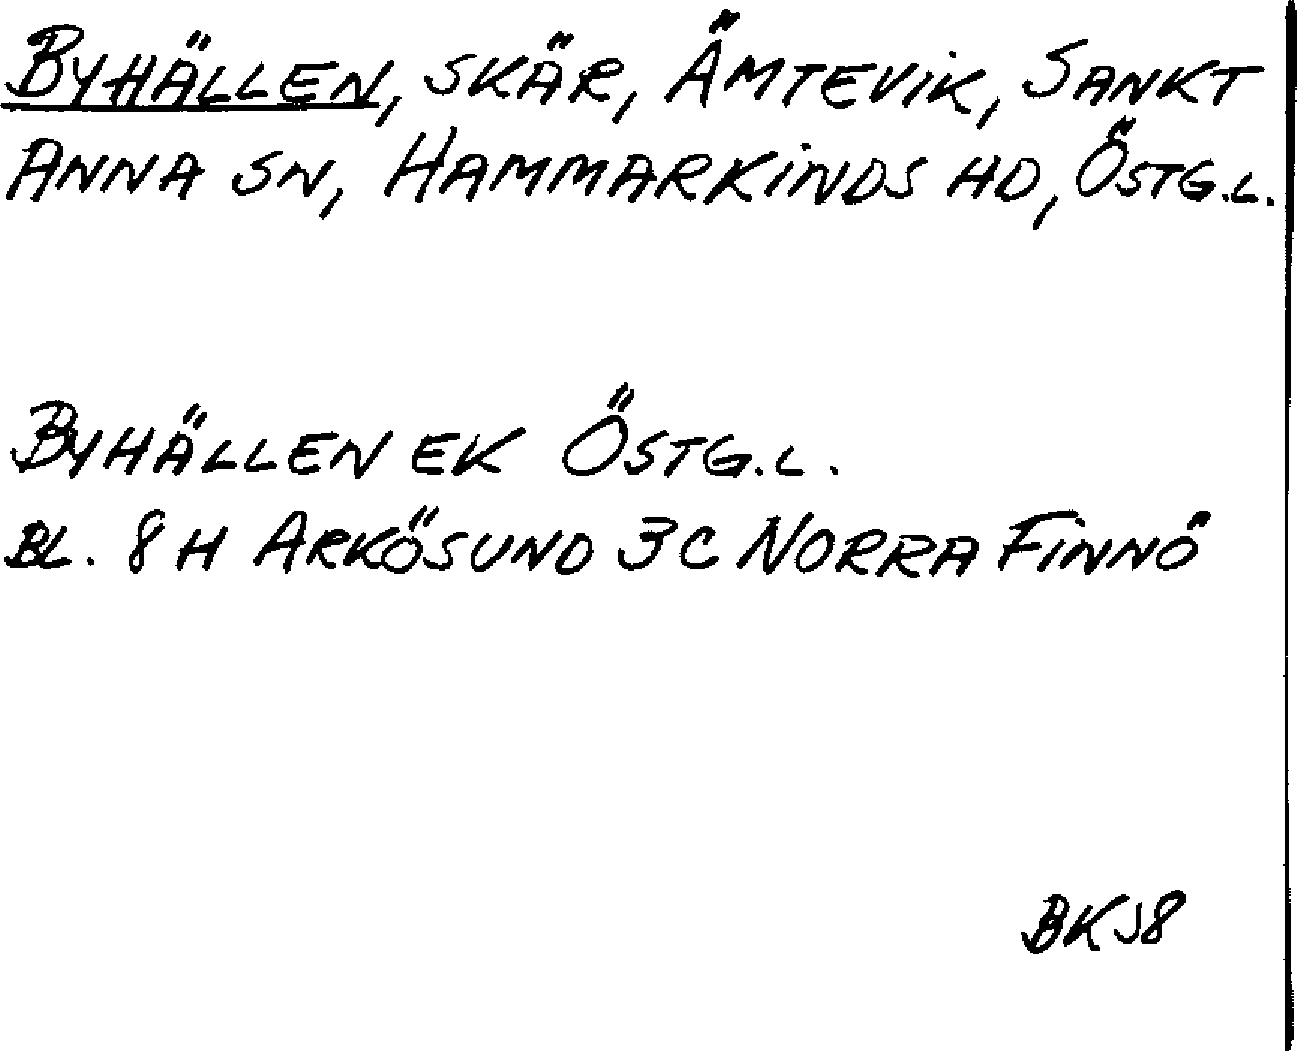 BYHÄLLEN, SKÄR, ÄMTEVIK, SANKT
ANNA SN, HAMMARKINDS HD, ÖSTG.L.
BYHÄLLEN EK ÖSTG.L.
BL. 8 H ARKÖSUND 3 C NORRA FINNÖ
BKJ8